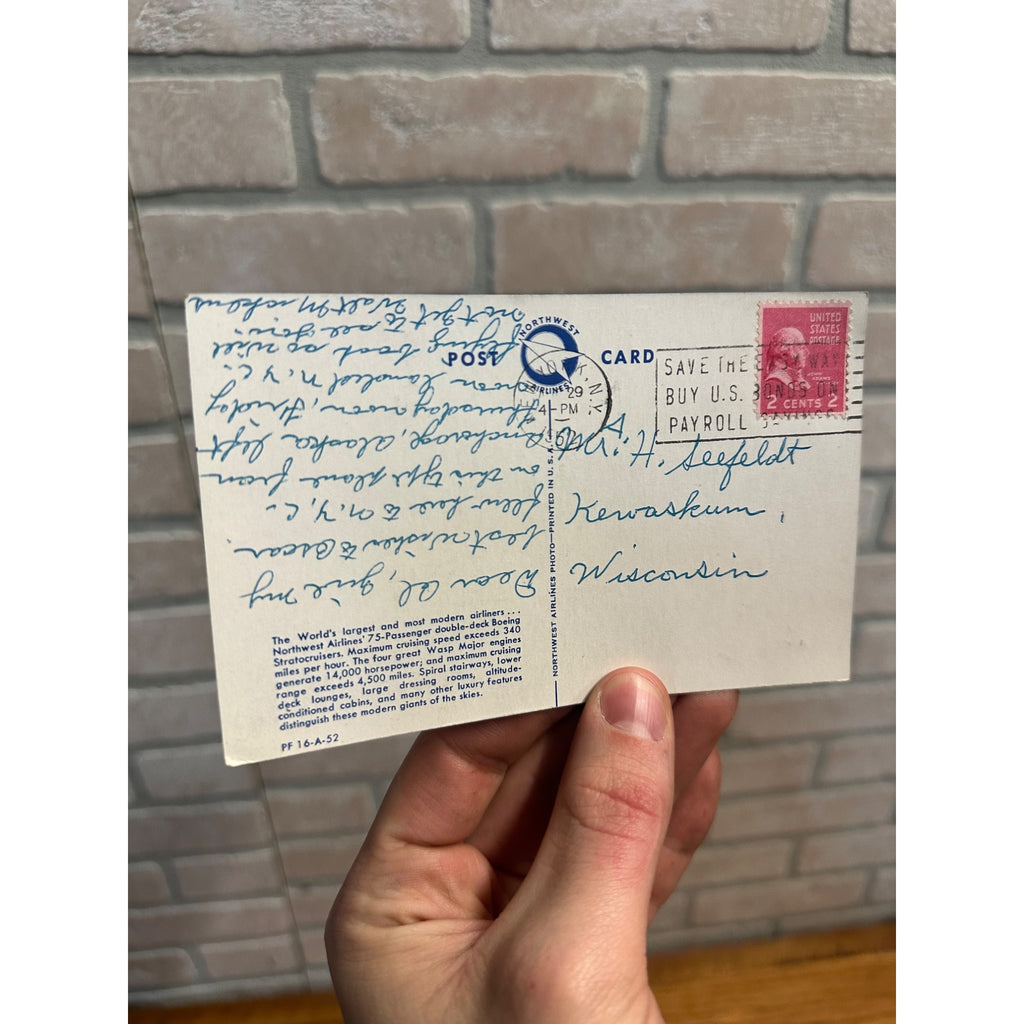 POST CARD
NORTHWEST
AIRLINES
29
4-PM
N.Y.
SAVE THE EASY WAY
BUY U.S. BONDS ON
PAYROLL SAVINGS
UNITED
STATES
POSTAGE
JOHN
ADAMS
2 CENTS 2
Mr. H. Seefeldt
Kewaskum,
Wisconsin
Dear Al, give my
best wishes to Oscar.
flew here to N.Y.C.
on this type plane from
Anchorage, Alaska left
thursday noon, Friday
noon landed N.Y.C.
flying back so will
not get to see you.
Walt Mickens
NORTHWEST AIRLINES PHOTO—PRINTED IN U.S.A.
The World's largest and most modern airliners . . .
Northwest Airlines' 75-Passenger double-deck Boeing
Stratocruisers. Maximum cruising speed exceeds 340
miles per hour. The four great Wasp Major engines
generate 14,000 horsepower; and maximum cruising
range exceeds 4,500 miles. Spiral stairways, lower
deck lounges, large dressing rooms, altitude-
conditioned cabins, and many other luxury features
distinguish these modern giants of the skies.
PF 16-A-52